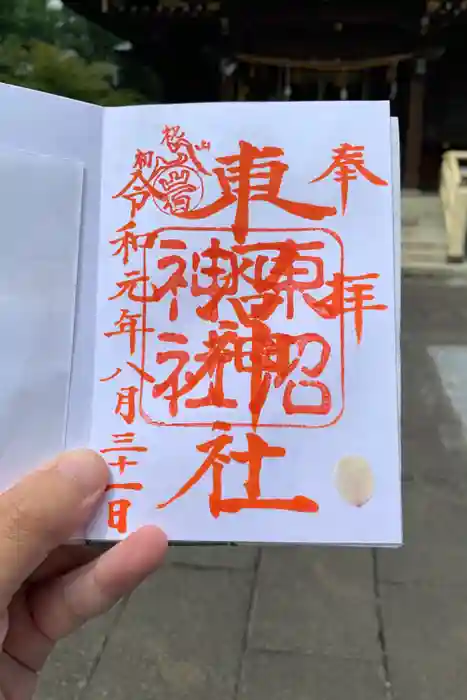 奉拝
東照神社
東照
神社
令和元年八月三十一日